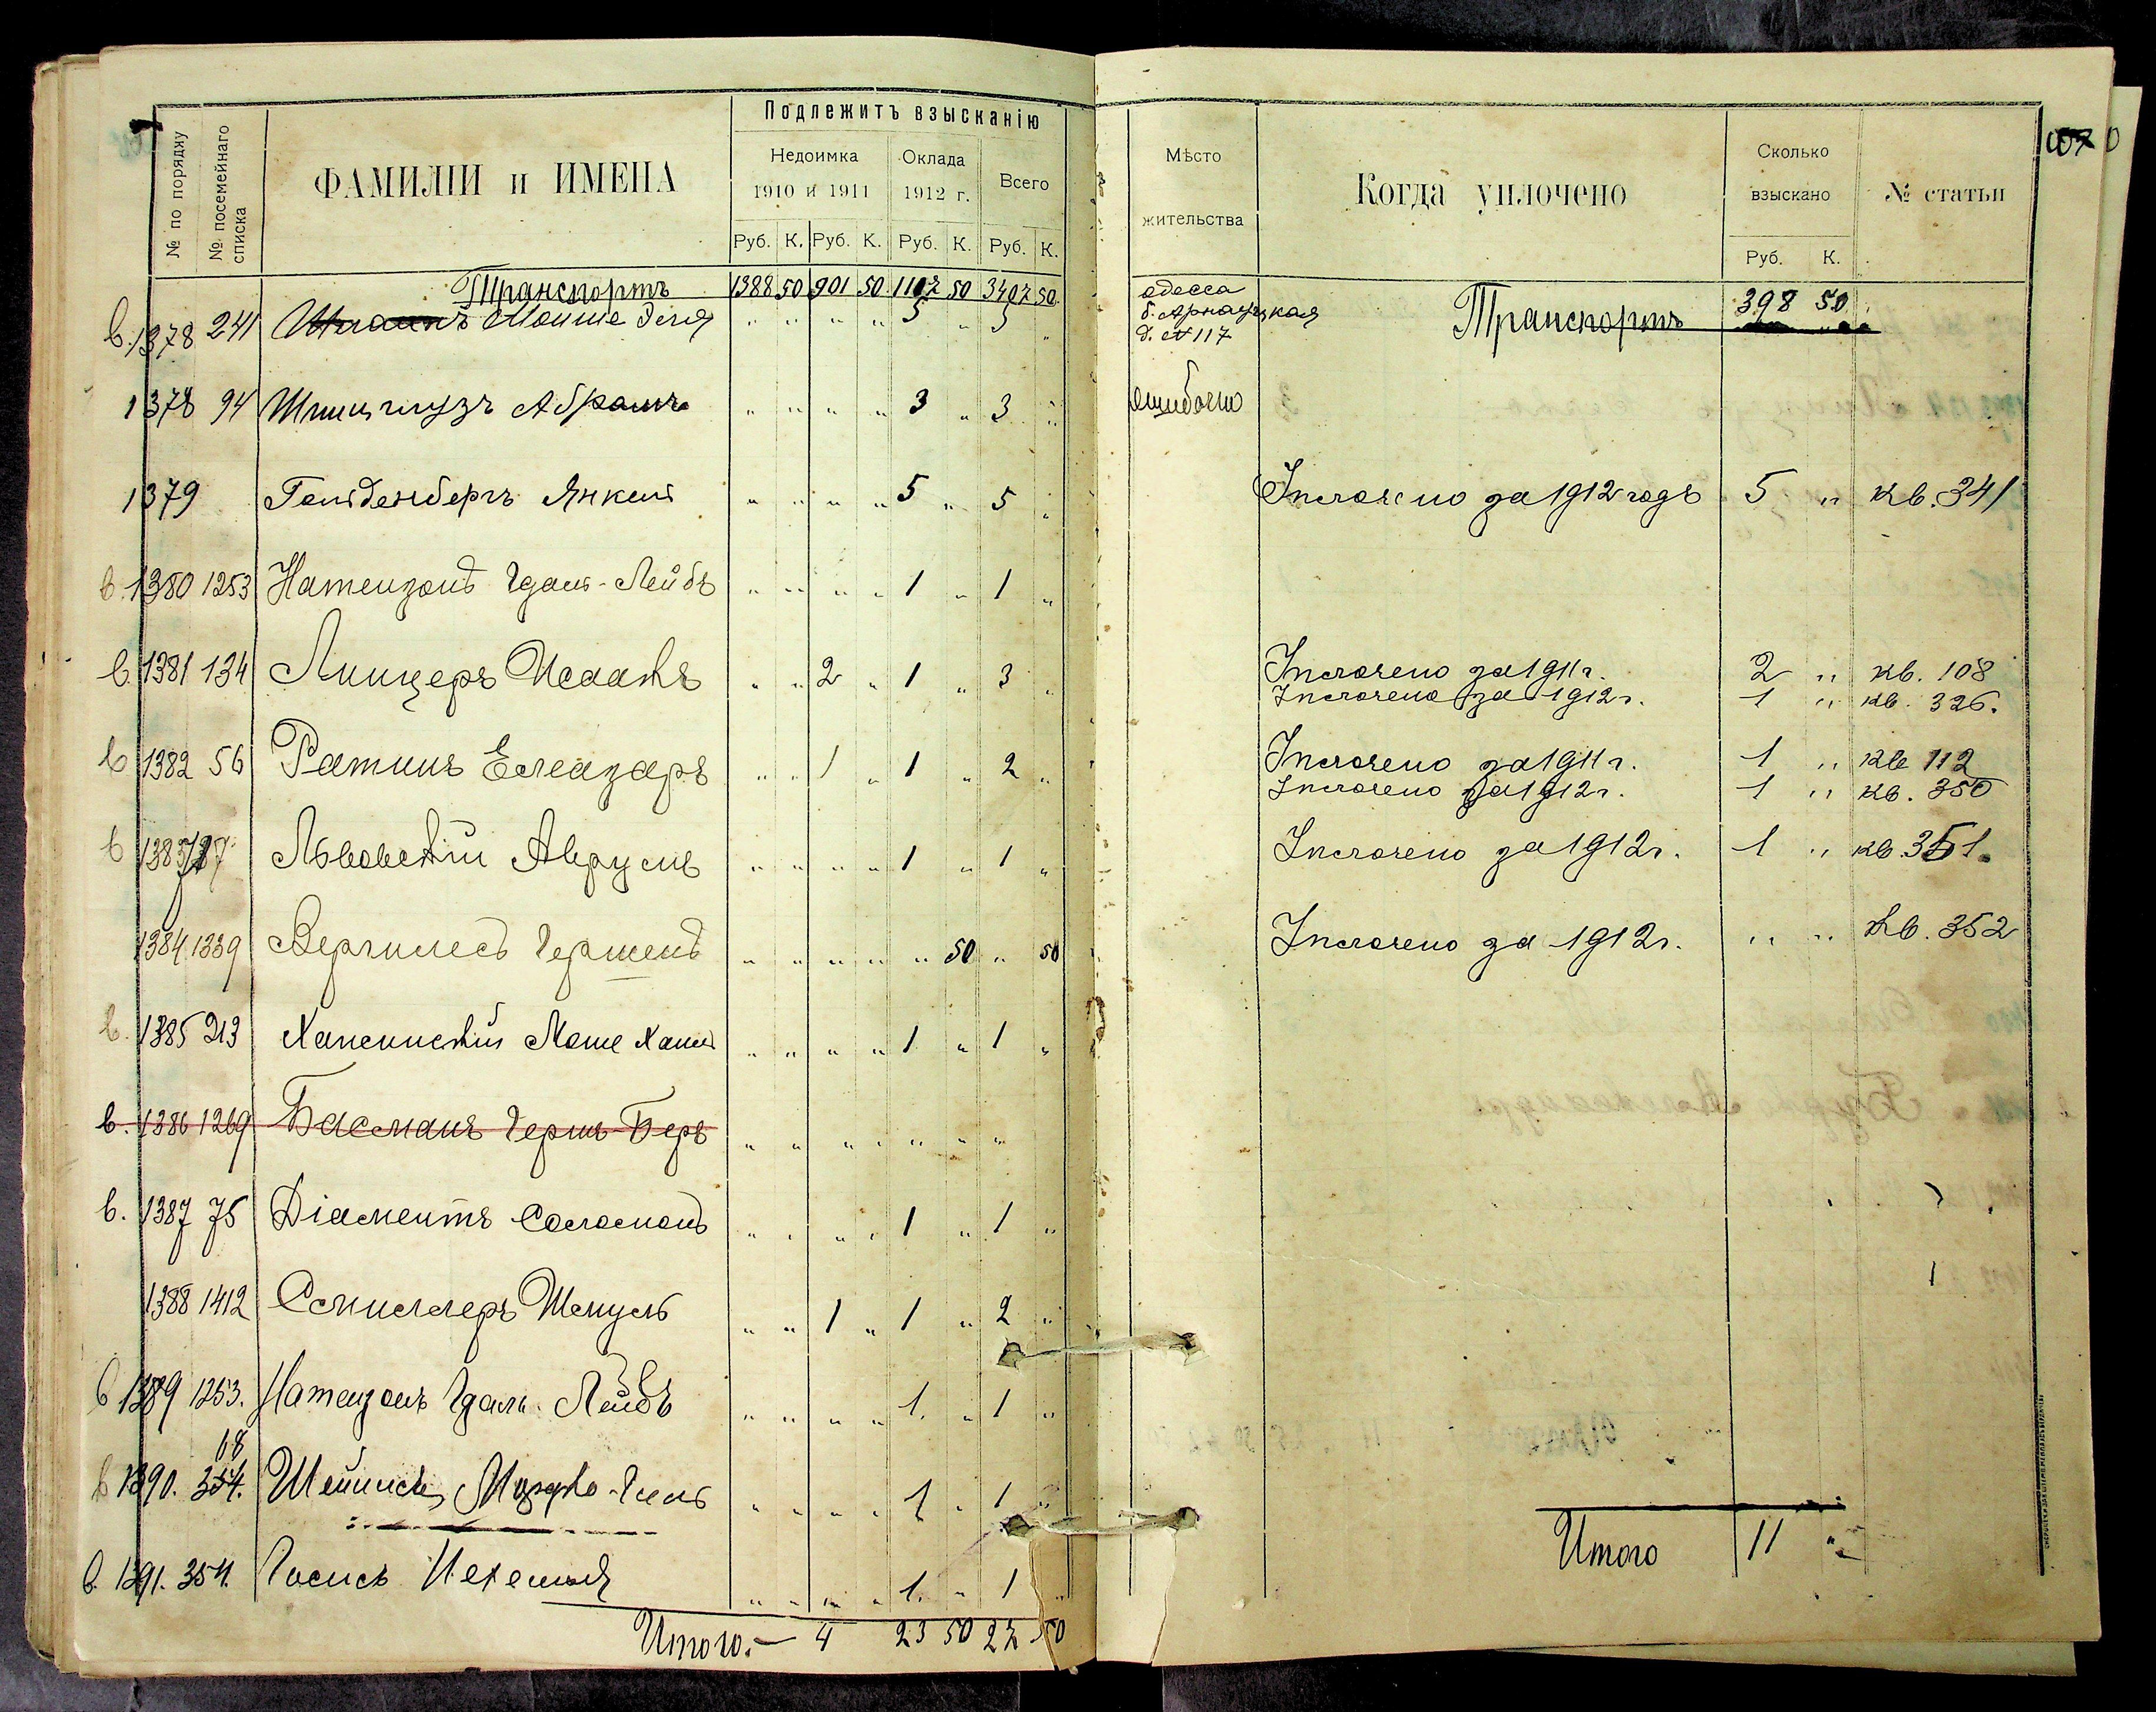 № по порядку
№ посемейнаго списка
ФАМИЛІИ и ИМЕНА
Подлежитъ взысканію
Недоимка
1910 и 1911
Оклада
1912 г.
Всего
Руб. К. Руб. К. Руб. К. Руб. К.
Транспортъ 1388 50 901 50 1107 50 3407 50
в. 1378 241 Мошие " " " " 5 " 5 "
1378 94 Шпицглузъ Абрамъ " " " " 3 " 3 "
1379 Гольденбергъ Янкель " " " " 5 " 5 "
в. 1380 1253 Натензонъ Гдаль-Лейбъ " " " " 1 " 1 "
в. 1381 134 Липцеръ Исаакъ " " 2 " 1 " 3 "
в 1382 56 Ратинъ Елеазаръ " " 1 " 1 " 2 "
в 1383 Львовскій Аврумъ " " " " 1 " 1 "
1384 1339 Вергилесъ Гершенъ " " " " " 50 " 50
в. 1385 213 Моше Хаимъ " " " " 1 " 1 "
в. 1386 1269 Басманъ Гершъ-Беръ " " " " " " "
в. 1387 75 Діаментъ Соломонъ " " " " 1 " 1 "
1388 1412 Шмуль " " 1 " 1 " 2 "
в 1389 1253. Натензонъ Гдаль Лейбъ " " " " 1. " 1 "
68
в 1390. 354. " " " " 1 " 1 "
в. 1391. 354. " " " " 1. " 1 "
Итого.— 4 23 50 27 50
Мѣсто
жительства
Когда уплочено
Сколько
взыскано
Руб. К.
№ статьи
одесса
б. Арнаутская
д. № 117
Транспортъ 398 50
ошибочно
Уплочено за 1912 годъ 5 " кв. 341
Уплочено за 1911 г. 2 " кв. 108
Уплочено за 1912 г. 1 " кв. 326.
Уплочено за 1911 г. 1 " кв 112
Уплочено за 1912 г. 1 " кв. 350
Уплочено за 1912 г. 1 " кв. 351.
Уплочено за 1912 г. " " Кв. 352
Итого 11 "